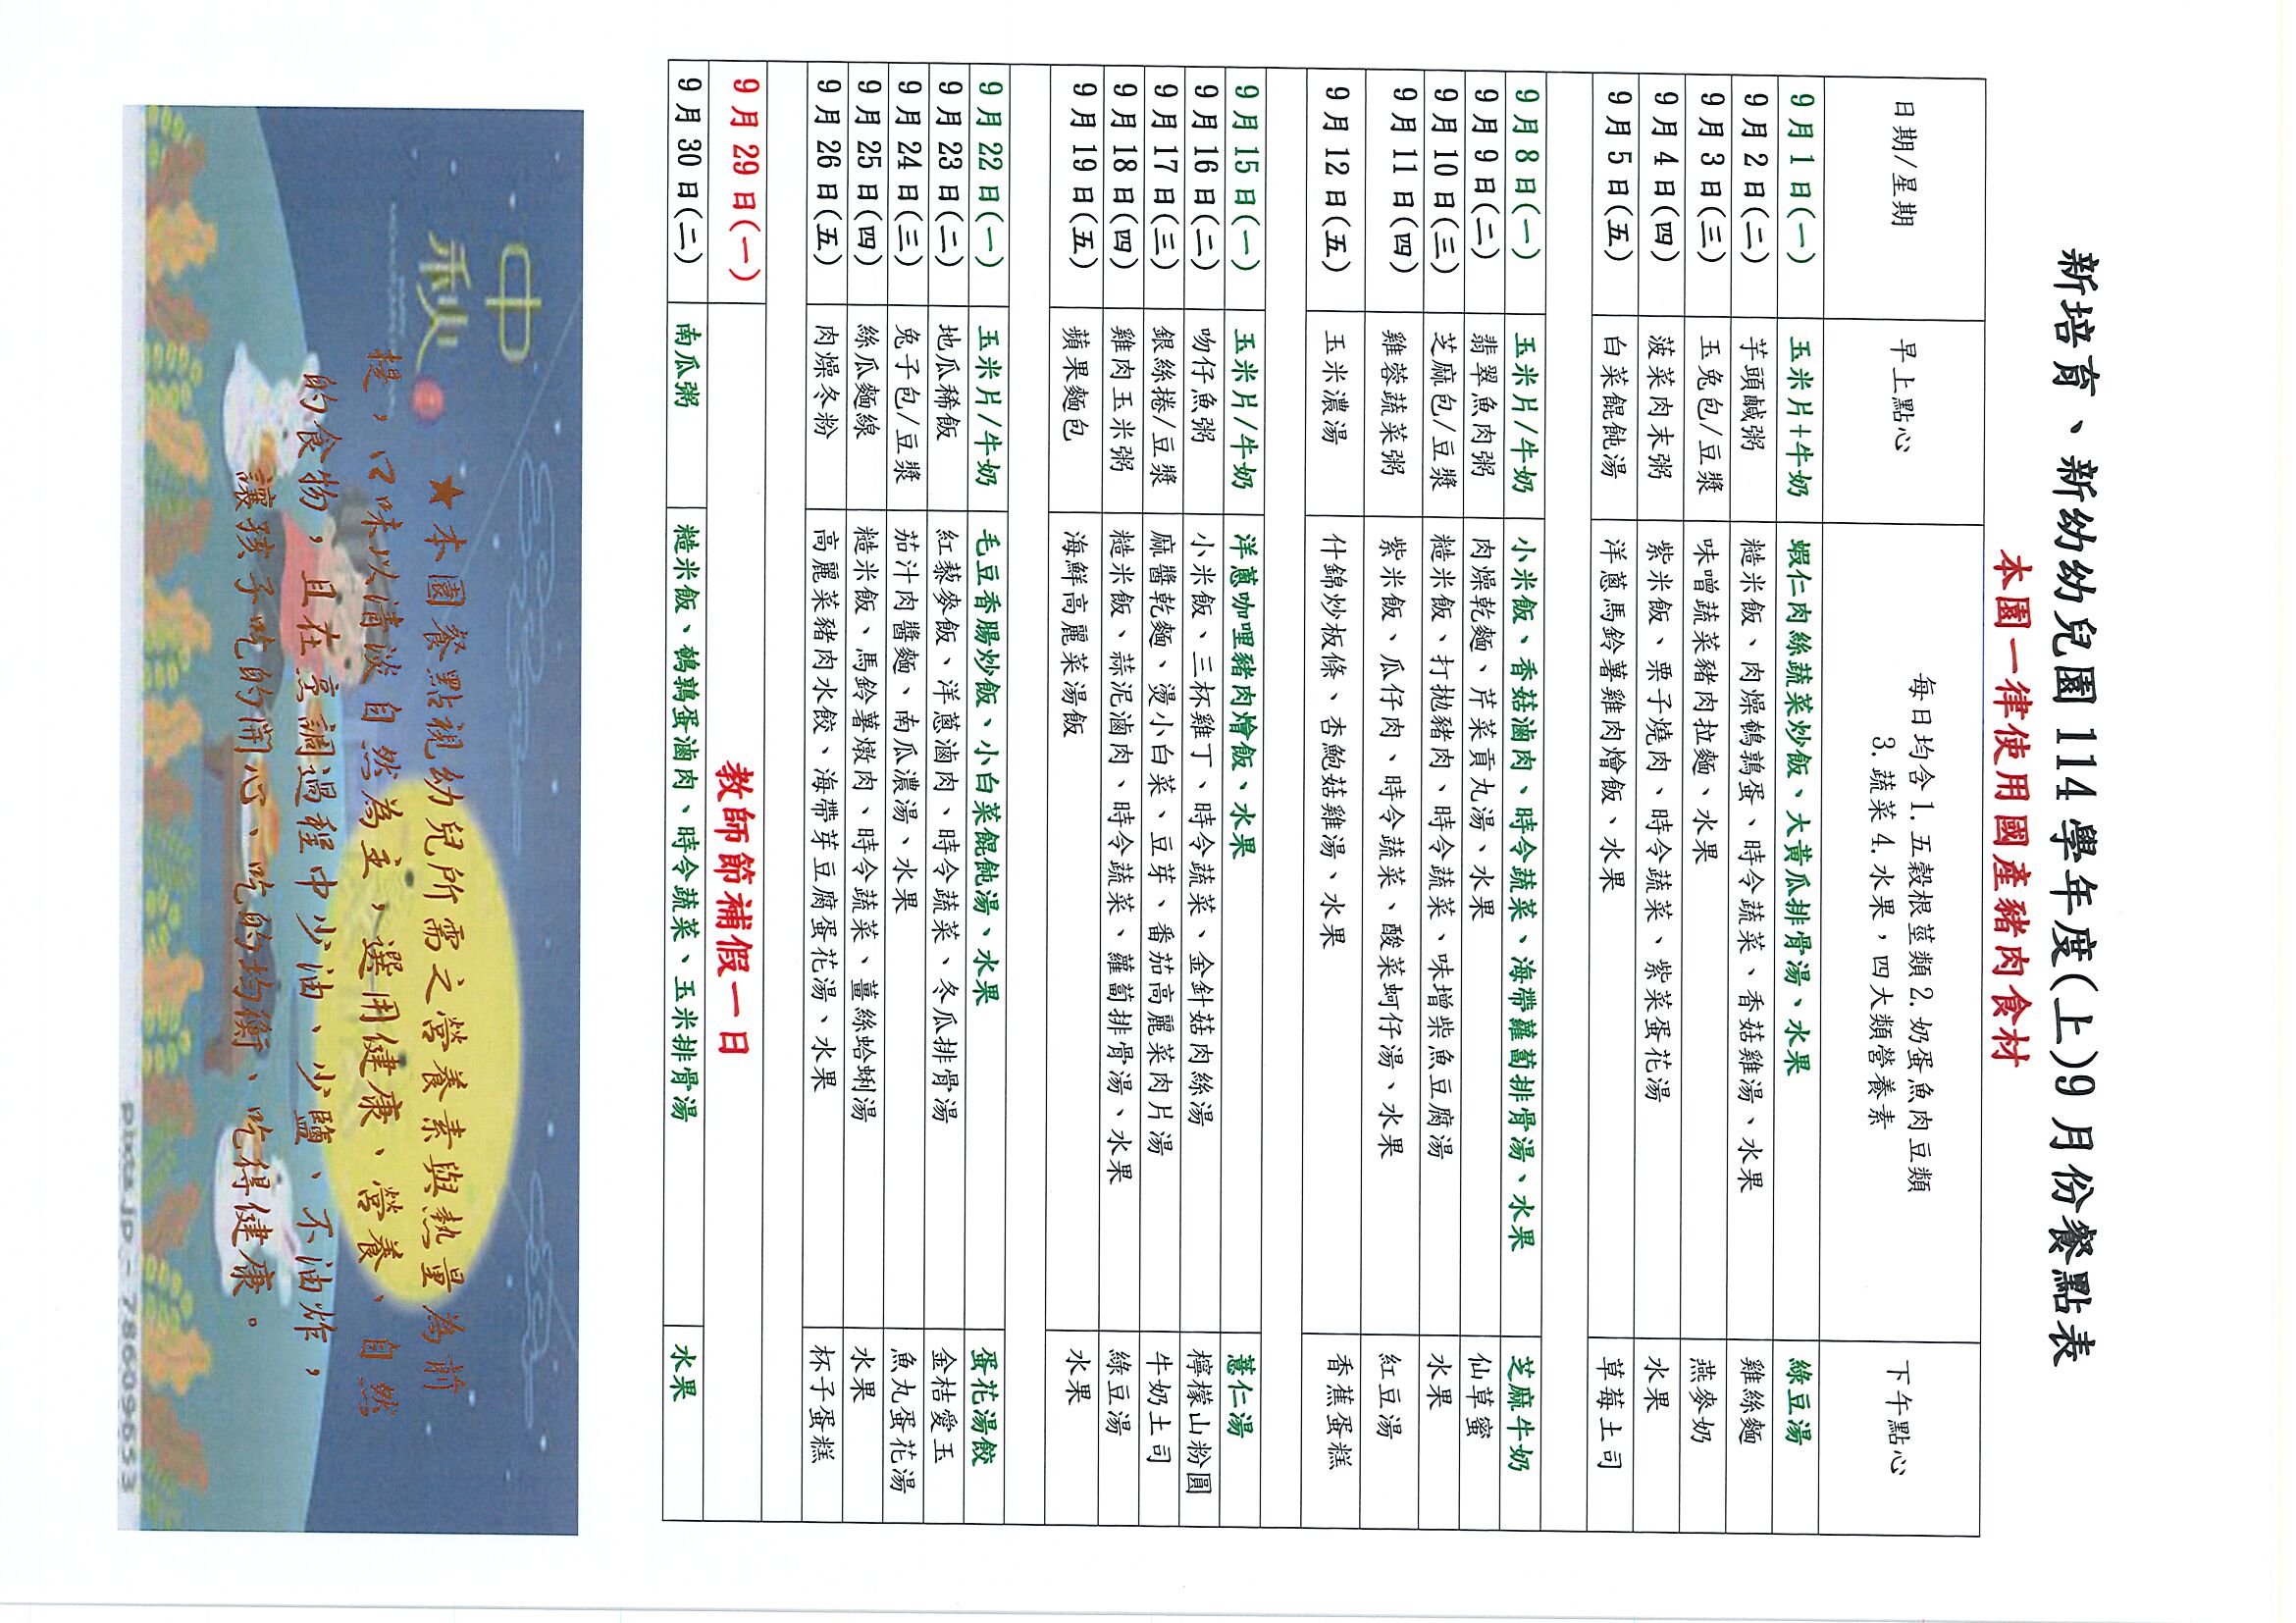 新培育、新幼幼兒園 114 學年度(上)9 月份餐點表
本園一律使用國產豬肉食材
日期/星期 早上點心 每日均含1.五穀根莖類2.奶蛋魚肉豆類 下午點心
3.蔬菜4.水果，四大類營養素
9 月 1 日(一) 玉米片+牛奶 蝦仁肉絲蔬菜炒飯、大黃瓜排骨湯、水果 綠豆湯
9 月 2 日(二) 芋頭鹹粥 糙米飯、肉燥鵪鶉蛋、時令蔬菜、香菇雞湯、水果 雞絲麵
9 月 3 日(三) 玉兔包/豆漿 味噌蔬菜豬肉拉麵、水果 燕麥奶
9 月 4 日(四) 菠菜肉末粥 紫米飯、栗子燒肉、時令蔬菜、紫菜蛋花湯 水果
9 月 5 日(五) 白菜餛飩湯 洋蔥馬鈴薯雞肉燴飯、水果 草莓土司
9 月 8 日(一) 玉米片/牛奶 小米飯、香菇滷肉、時令蔬菜、海帶蘿蔔排骨湯、水果 芝麻牛奶
9 月 9 日(二) 翡翠魚肉粥 肉燥乾麵、芹菜貢丸湯、水果 仙草蜜
9 月 10 日(三) 芝麻包/豆漿 糙米飯、打拋豬肉、時令蔬菜、味增柴魚豆腐湯 水果
9 月 11 日(四) 雞蓉蔬菜粥 紫米飯、瓜仔肉、時令蔬菜、酸菜蚵仔湯、水果 紅豆湯
9 月 12 日(五) 玉米濃湯 什錦炒板條、杏鮑菇雞湯、水果 香蕉蛋糕
9 月 15 日(一) 玉米片/牛奶 洋蔥咖哩豬肉燴飯、水果 薏仁湯
9 月 16 日(二) 吻仔魚粥 小米飯、三杯雞丁、時令蔬菜、金針菇肉絲湯 檸檬山粉圓
9 月 17 日(三) 銀絲捲/豆漿 麻醬乾麵、燙小白菜、豆芽、番茄高麗菜肉片湯 牛奶土司
9 月 18 日(四) 雞肉玉米粥 糙米飯、蒜泥滷肉、時令蔬菜、蘿蔔排骨湯、水果 綠豆湯
9 月 19 日(五) 蘋果麵包 海鮮高麗菜湯飯 水果
9 月 22 日(一) 玉米片/牛奶 毛豆香腸炒飯、小白菜餛飩湯、水果 蛋花湯餃
9 月 23 日(二) 地瓜稀飯 紅藜麥飯、洋蔥滷肉、時令蔬菜、冬瓜排骨湯 金桔愛玉
9 月 24 日(三) 兔子包/豆漿 茄汁肉醬麵、南瓜濃湯、水果 魚丸蛋花湯
9 月 25 日(四) 絲瓜麵線 糙米飯、馬鈴薯燉肉、時令蔬菜、薑絲蛤蜊湯 水果
9 月 26 日(五) 肉燥冬粉 高麗菜豬肉水餃、海帶芽豆腐蛋花湯、水果 杯子蛋糕
9 月 29 日(一) 教師節補假一日
9 月 30 日(二) 南瓜粥 糙米飯、鵪鶉蛋滷肉、時令蔬菜、玉米排骨湯 水果
中秋
★本園餐點視幼兒所需之營養素與熱量為前
提，口味以清淡自然為主，選用健康、營養、自然
的食物，且在烹調過程中少油、少鹽、不油炸，
讓孩子吃的開心、吃的均衡、吃得健康。
pixta.jp - 78609653